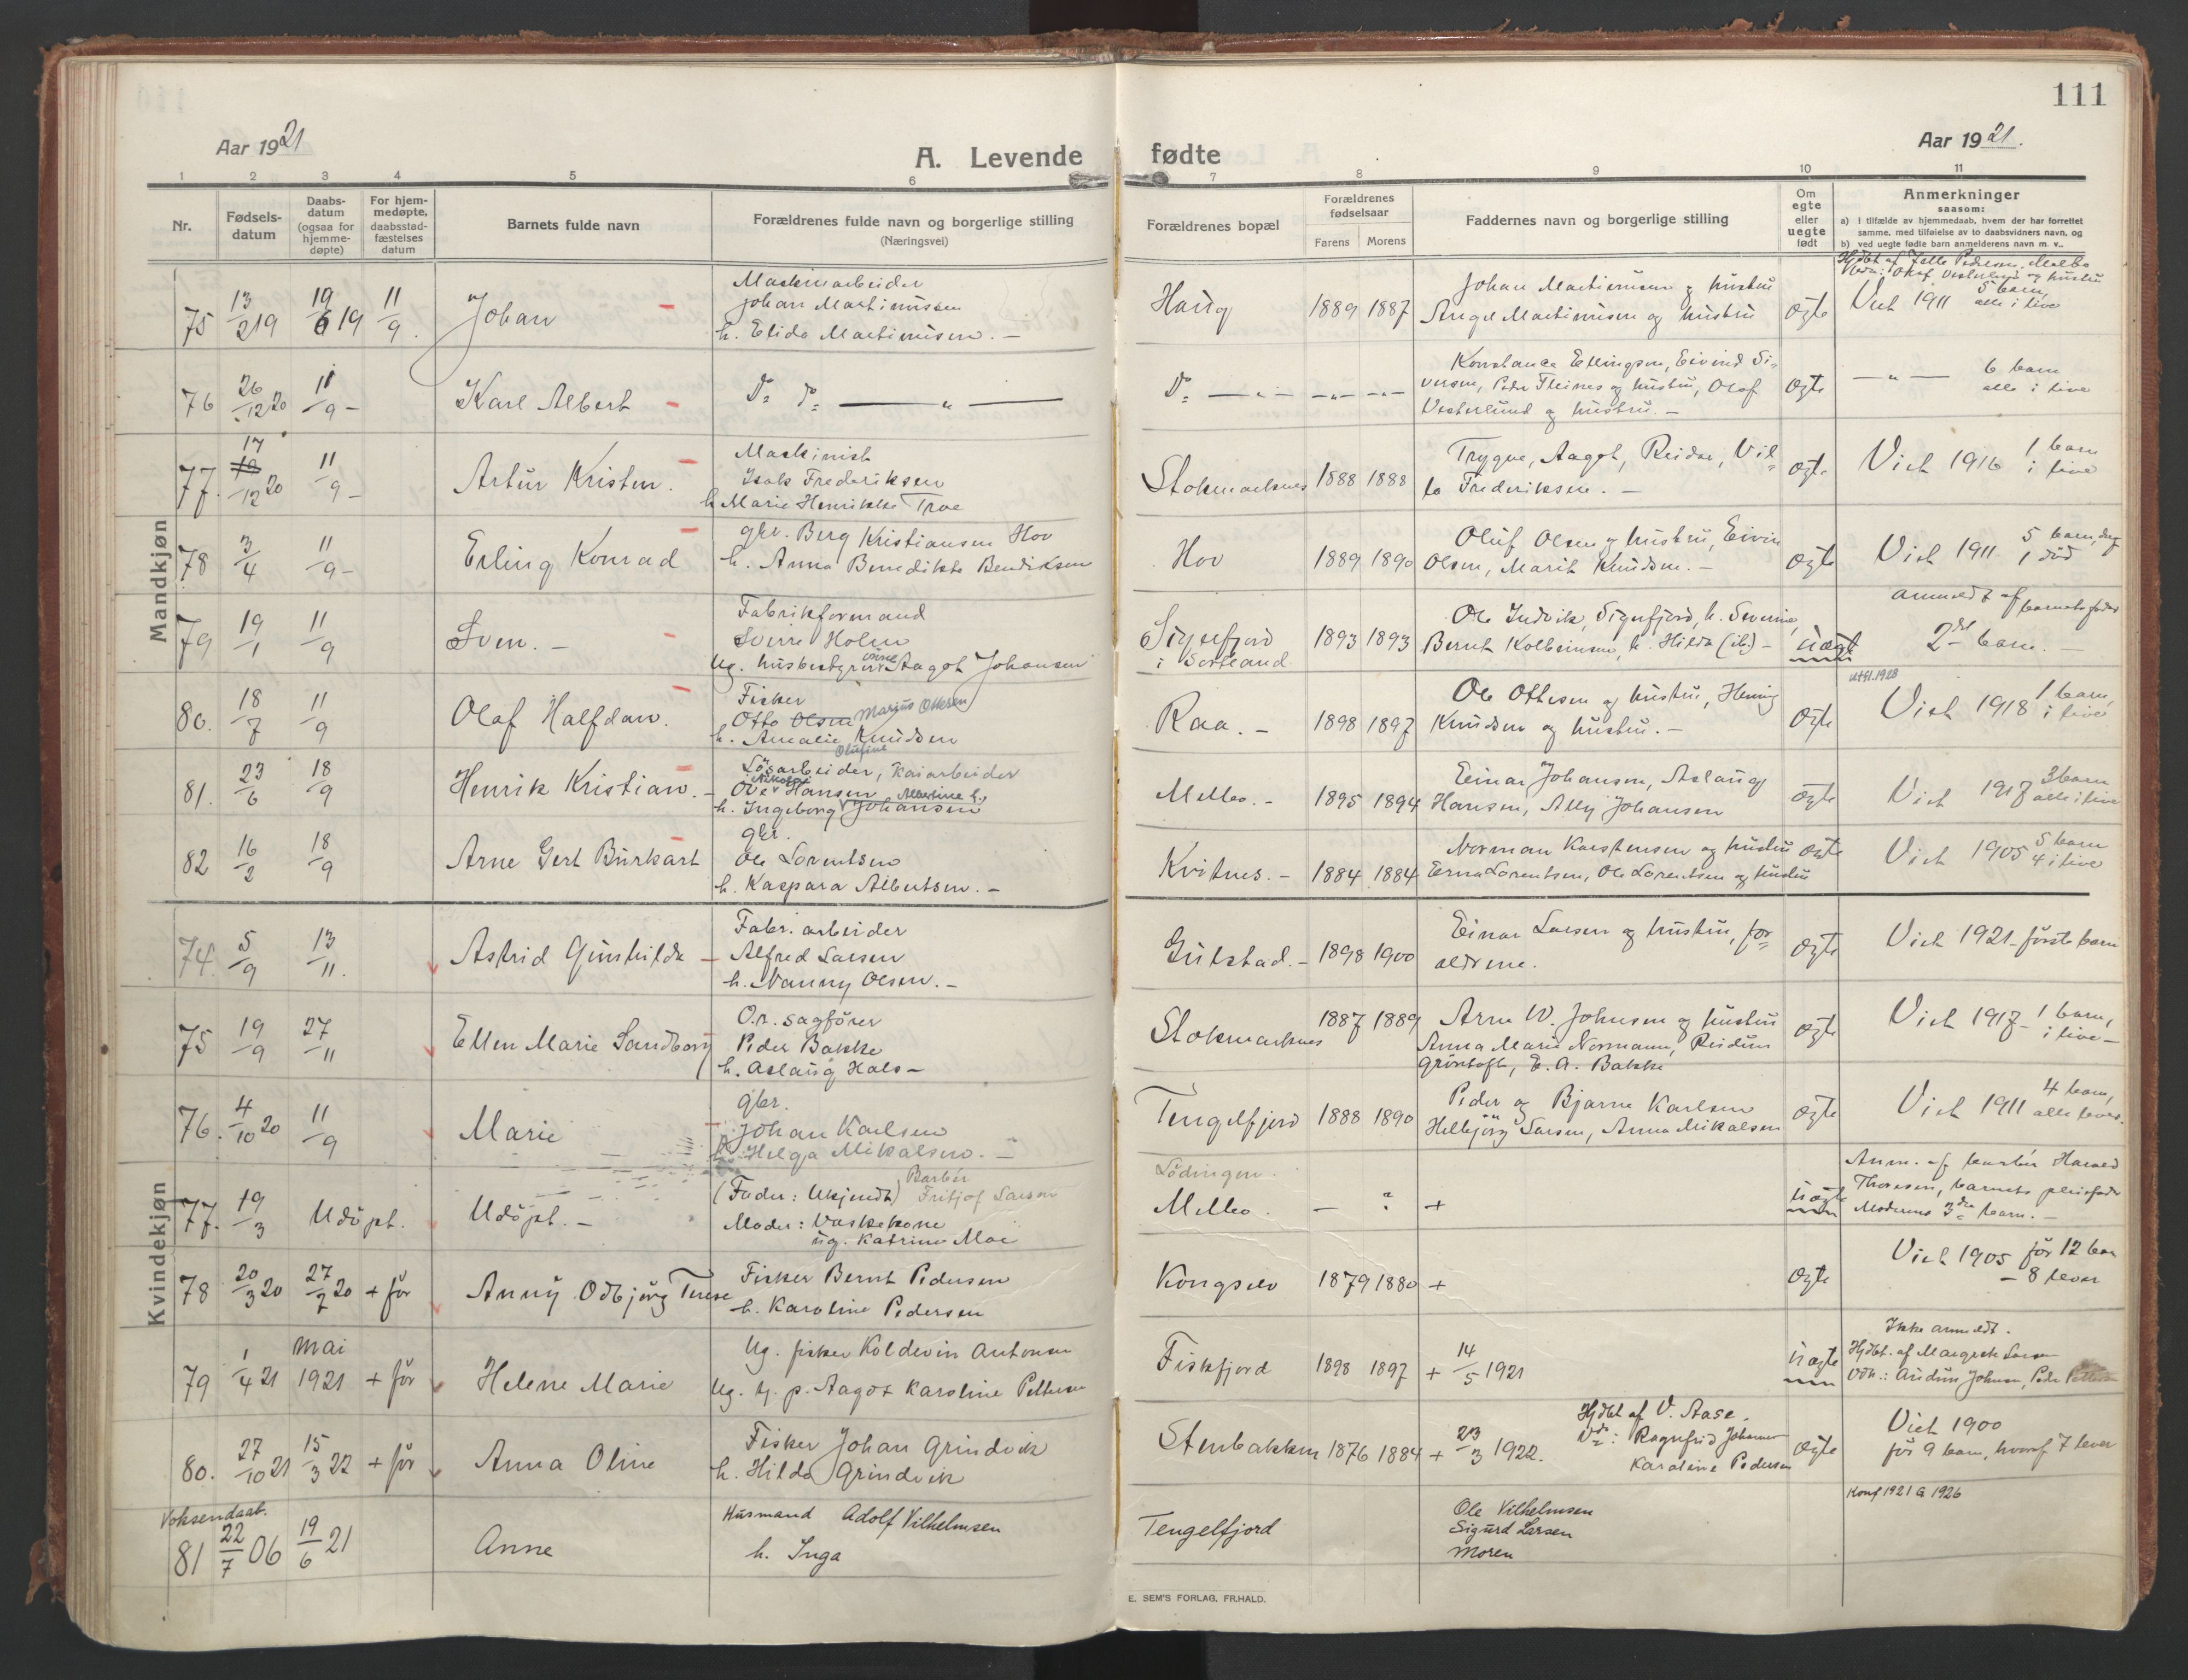 111
Aar 1921
A. Levende fødte
Aar 1921.
1 2 3 4 5 6 7 8 9 10 11
Nr.
Fødsels-
datum
Daabs-
datum
(ogsaa for
hjemme-
døpte)
For hjem-
medøpte,
daabsstad-
fæstelses
datum
Barnets fulde navn
Forældrenes fulde navn og borgerlige stilling
(Næringsvei)
Forældrenes bopæl
Forældrenes
fødselsaar
Farens Morens
Faddernes navn og borgerlige stilling
Om
egte
eller
uegte
født
Anmerkninger
saasom:
a) i tilfælde av hjemmedaab, hvem der har forrettet
samme, med tilføielse av to daabsvidners navn, og
b) ved uegte fødte barn anmelderens navn m. v..
Mandkjøn
75 13/2 19 19/6 19 11/9. Johan
Maskinarbeider
Johan Martinussen
h. Elida Martinussen. –
Haug 1889 1887
Johan Martinussen og hustru
Angel Martinussen og hustru
ægte
Hjdbt af Pedersen, Melbo
Olaf Vesterlund og hustru
Viet 1911 5 barn,
alle i live
76 26/12 20 11/9 – Karl Albert
Do Do — " —
Do — " — — " — — " —
Konstance Ellingsen, Eivind Si-
versen, Peder Fleines og hustru, Olaf
Vesterlund og hustru. –
ægte
— " — 6 barn
alle i live
77. 17/12 20 11/9 – Artur Kristen.
Maskinist
Isak Frederiksen
h Marie Henrikke Troe
Stokmarknes 1888 1888
Trygve, Aagot, Reidar, Vil-
la Frederiksen. –
ægte
Viet 1916 1 barn
i live
78 3/4 11/9 – Erling Konrad
gbr. Berg Kristiansen Hov
h. Anna Benedikte Bendiksen
Hov 1889 1890
Oluf Olsen og hustru, Eivin
Olsen, Marit Knudsen. –
ægte
Viet 1911 5 barn,
1 död
79 19/1 11/9 Sven. –
Fabrikformand
Sverre Holm
Ug. husbestyrerinne Aagot Johansen
Sigerfjord
i Sortland
1893 1893
Ole Indvik, Sigerfjord, h. Severine,
Bernt Kolbeinsen, h. Hilda (ib.) –
uægte
anmeldt af barnets fader
2det barn. –
80. 18/7 11/9 Olaf Halfdan.
Fisker
Otto Olsen Marius Ottesen
h. Amalie Knudsen
Olufine
Raa. – 1898 1897
Ole Ottesen og hustru, Hening
Knudsen og hustru. –
ægte
utfl. 1928
Viet 1918 1 barn,
i live
81. 23/6 18/9 Henrik Kristian. –
Lösarbeider, Kaiarbeider
Nikolai
Ove Hansen
Albertine h.
h. Ingeborg Johansen
Melbo. – 1895 1894
Einar Johansen, Aslaug
Hansen, Ally Johansen
ægte
Viet 1917 3 barn
alle i live
82 16/2 18/9 Arne Gert Burkart
gbr.
Ole Lorentsen
h. Kaspara Albertsen. –
Kvitnes. – 1884 1884
Norman Karstensen og hustru
Erna Lorentsen, Ole Lorentsen og hustru
ægte
Viet 1905 5 barn
4 i live
Kvindekjøn
74. 5/9 13/11. Astrid Gunhilda –
Fabr. arbeider
Alfred Larsen
h. Nanny Olsen. –
Gulstad. – 1898 1900
Einar Larsen og hustru, for-
ældrene.
ægte
Viet 1921 – förste barn
75 19/9 27/11 Ellen Marie Sandborg
O.r. sagförer
Peder Bakke
h. Aslaug Hals –
Stokmarknes 1887 1889
Arne W. Johnsen og hustru
Anna Marie Normann, Reidun
Gröntoft, E. A. Bakke
ægte
Viet 1917 – 1 barn,
i live –
76. 4/10 20 11/9 Marie
gbr.
Johan Karlsen
h. Helga Mikalsen. –
Tengelfjord 1888 1890
Peder og Bjarne Karlsen
Helbjörg Larsen, Anna Mikalsen
ægte
Viet 1911 4 barn,
alle lever.
77. 19/3 Udöpt. Udöpt. –
Barbér
(Fader: Ukjendt) Fritjof Larsen
Moder: Vaskekone
ug. Katrine Moe
Lödingen.
Melbo. – ? +
uægte
Anm. af barbér Harald
Thoresen, barnets pleiefader
Moderens 3die barn. –
78 20/3 20 27/7 20 + för Anny Odbjörg Terese
Fisker Bernt Pedersen
h. Karoline Pedersen
Kongselv 1879 1880 +
ægte
Viet 1905 för 12 barn
– 8 lever
79 1/4 21 mai 1921 + för Helene Marie
Ug. fisker Koldevin Antonsen
Ug. tj. p. Aagot Karoline Pettersen
Fiskfjord 1898 1897 + 14/5 1921
uægte
Ikke anmeldt.
Hjdbt. af Margrete Larsen
Vdn.: Audun Johnsen, Peder Pettersen
80. 27/10 21 15/3 22 + för Anna Oline
Fisker Johan Grindvik
h. Hilda Grindvik
Stenbakken 1876 1884 + 23/3 1922.
Hjdbt af V. Aase.
Vdn: Ragnfrid Johansen
Karoline Pedersen
ægte
Viet 1900
för 9 barn, hvoraf 7 lever
Voksendaab.
81 22/7 06 19/6 21 Anne
Husmand Adolf Vilhelmsen
h. Inga
Tengelfjord
Ole Vilhelmsen
Sigurd Larsen
Moren
Konf 1921 a 1926
E. SEM'S FORLAG, FR.HALD.